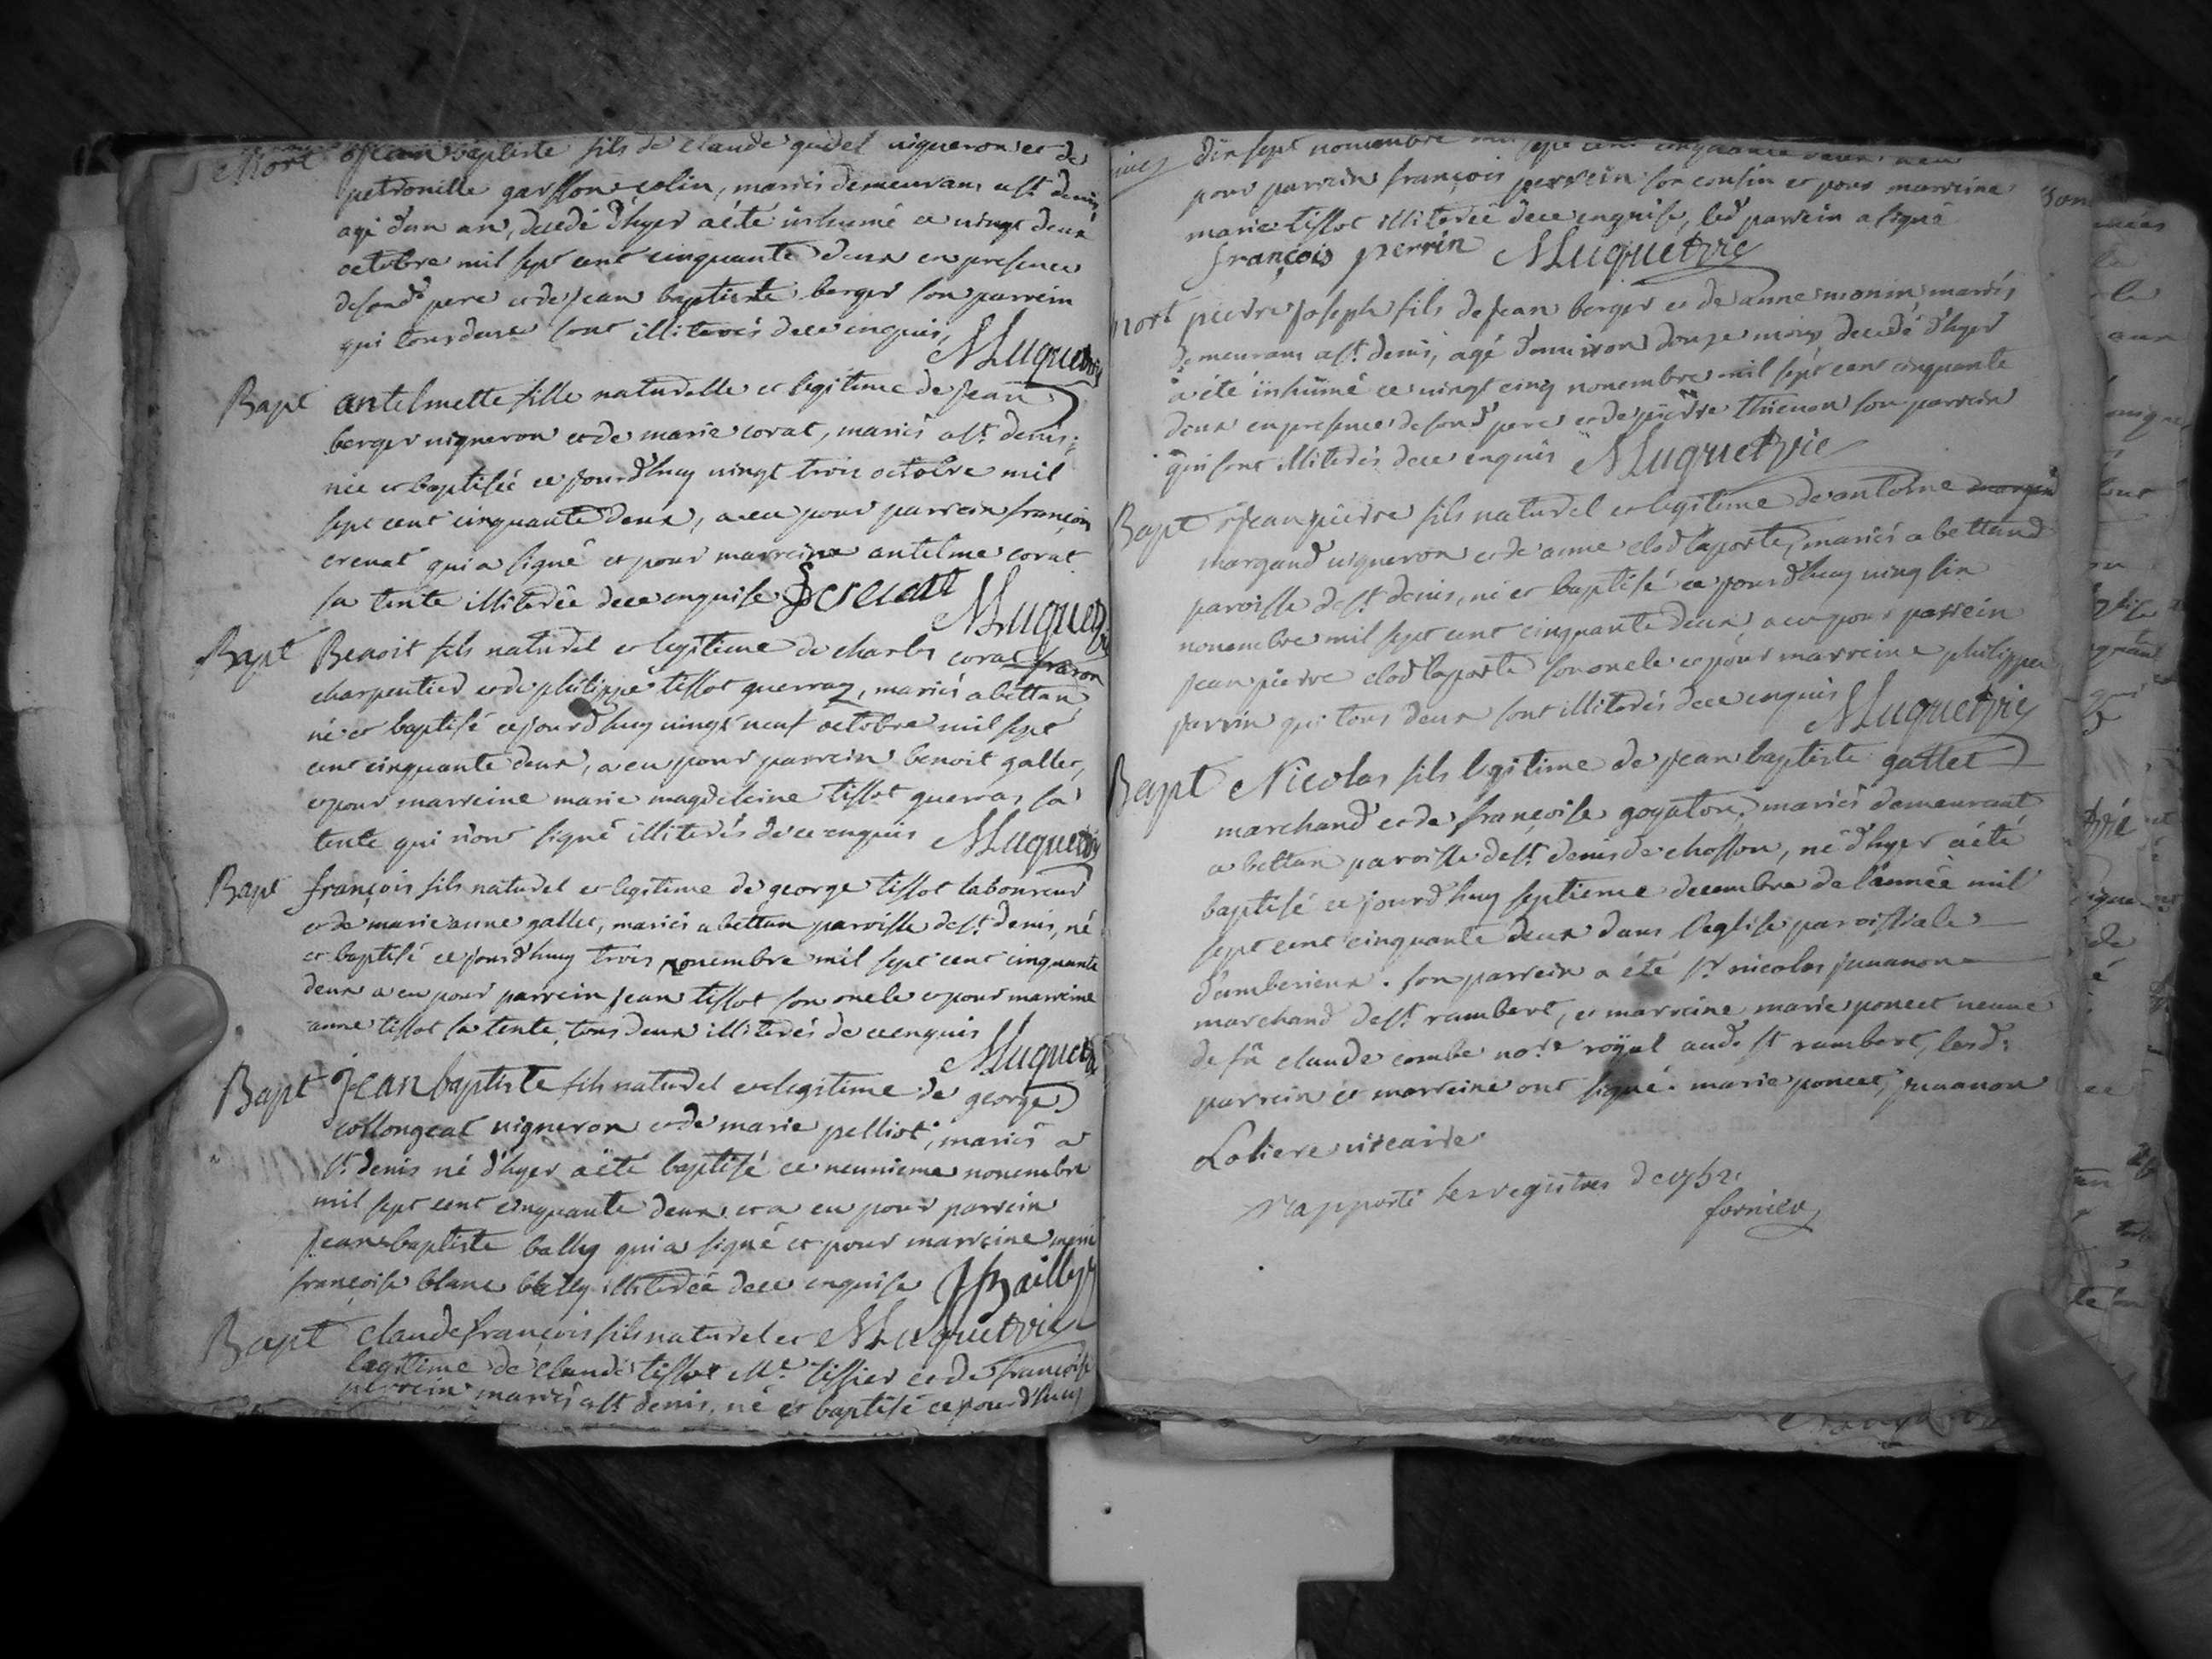 Mort Jean baptiste fils de claude gudel uigneron et de
petronille garsson colin, mariés demeurans a St. denis
agé d'un an, decedé d'hyer a été inhumé ce uingt deux
octobre mil sept cent cinquante deux en presence
de sond. pere et de Jean baptiste berger son parrein
qui tous deux sont illiterés de ce enquis, Muguetvie
Bapt antelmette fille naturelle et legitime de Jean
berger uigneron et de marie corat, mariés a St. denis;
née et baptisée ce jourd'huy uingt trois octobre mil
sept cent cinquante deux, a eu pour parrein françois
crenat qui a signé et pour marreine antelme corat
sa tente illiterée de ce enquise Muguetvie
Bapt Benoit fils naturel et legitime de charles corat
charpentier et de philippe tissot guerraz, mariés a bettan
né et baptisé cejourd'huy uingt neuf octobre mil sept
cent cinquante deux, a eu pour parrein benoit gallet,
et pour marreine marie magdeleine tissot guerras sa
tente qui n'ont signé illiterés de ce enquis Muguetvie
Bapt françois fils naturel et legitime de george tissot laboureur
et de marie anne gallet, mariés a bettan paroisse de St. denis, né
et baptisé ce jourd'huy trois nouembre mil sept cent cinquante
deux a eu pour parrein jean tissot son oncle et pour marreine
anne tissot sa tente, tous deux illiterés de ce enquis
Muguetvie
Bapt Jean baptiste fils naturel et legitime de george
collongeat uigneron et de marie pelliot, mariés a
St. denis né d'hyer a été baptisé ce neuuieme nouembre
mil sept cent cinquante deux et a eu pour parrein
Jean baptiste bally qui a signé et pour marreine
françoise blanc bally illiterée de ce enquise JBailly
Bapt claude françois fils naturel et Muguetvie
legitime de claude tissot Me. tissier et de françoise
perrein mariés a St. denis, né et baptisé ce jourd'huy
dix sept nouembre mil sept cent cinquante deux a eu
pour parrein françois perrein son cousin et pour marreine
marie tissot illiterée de ce enquise, led. parrein a signé
françois perrin Muguetvie
mort pierre joseph fils de jean berger et de anne monin mariés
demeurans a St. denis, agé d'enuiron douze mois decedé d'hyer
a été inhumé ce uingt cinq nouembre mil sept cent cinquante
deux en presence de sond. pere et de pierre thieuon son parrein
qui sont illiterés de ce enquis Muguetvie
Bapt Jean pierre fils naturel et legitime de antoine margand
margand uigneron et de anne clod laporte, mariés a bettand
paroisse de St. denis, né et baptisé ce jourd'huy uingt six
nouembre mil sept cent cinquante deux a eu pour parrein
jean pierre clod laporte son oncle et pour marreine philippe
perrin qui tous deux sont illiterés de ce enquis
Muguetvie
Bapt Nicolas fils legitime de jean baptiste gallet
marchand et de françoise goyaton, mariés demeurant
a bettan paroisse de St. denis de chosson, né d'hyer a été
baptisé ce jourd'huy septieme decembre de l'année mil
sept cent cinquante deux dans l'eglise paroissiale
d'amberieux. son parrein a été Sr. nicolas juuanon
marchand de St. rambert, et marreine marie poncet ueuue
de fû claude combe nore. royal aud. St rambert, lesd:
parrein et marreine ont signé. marie poncet, juuanon
Loliere uicaire
rapporté les registres de 1752
fornier